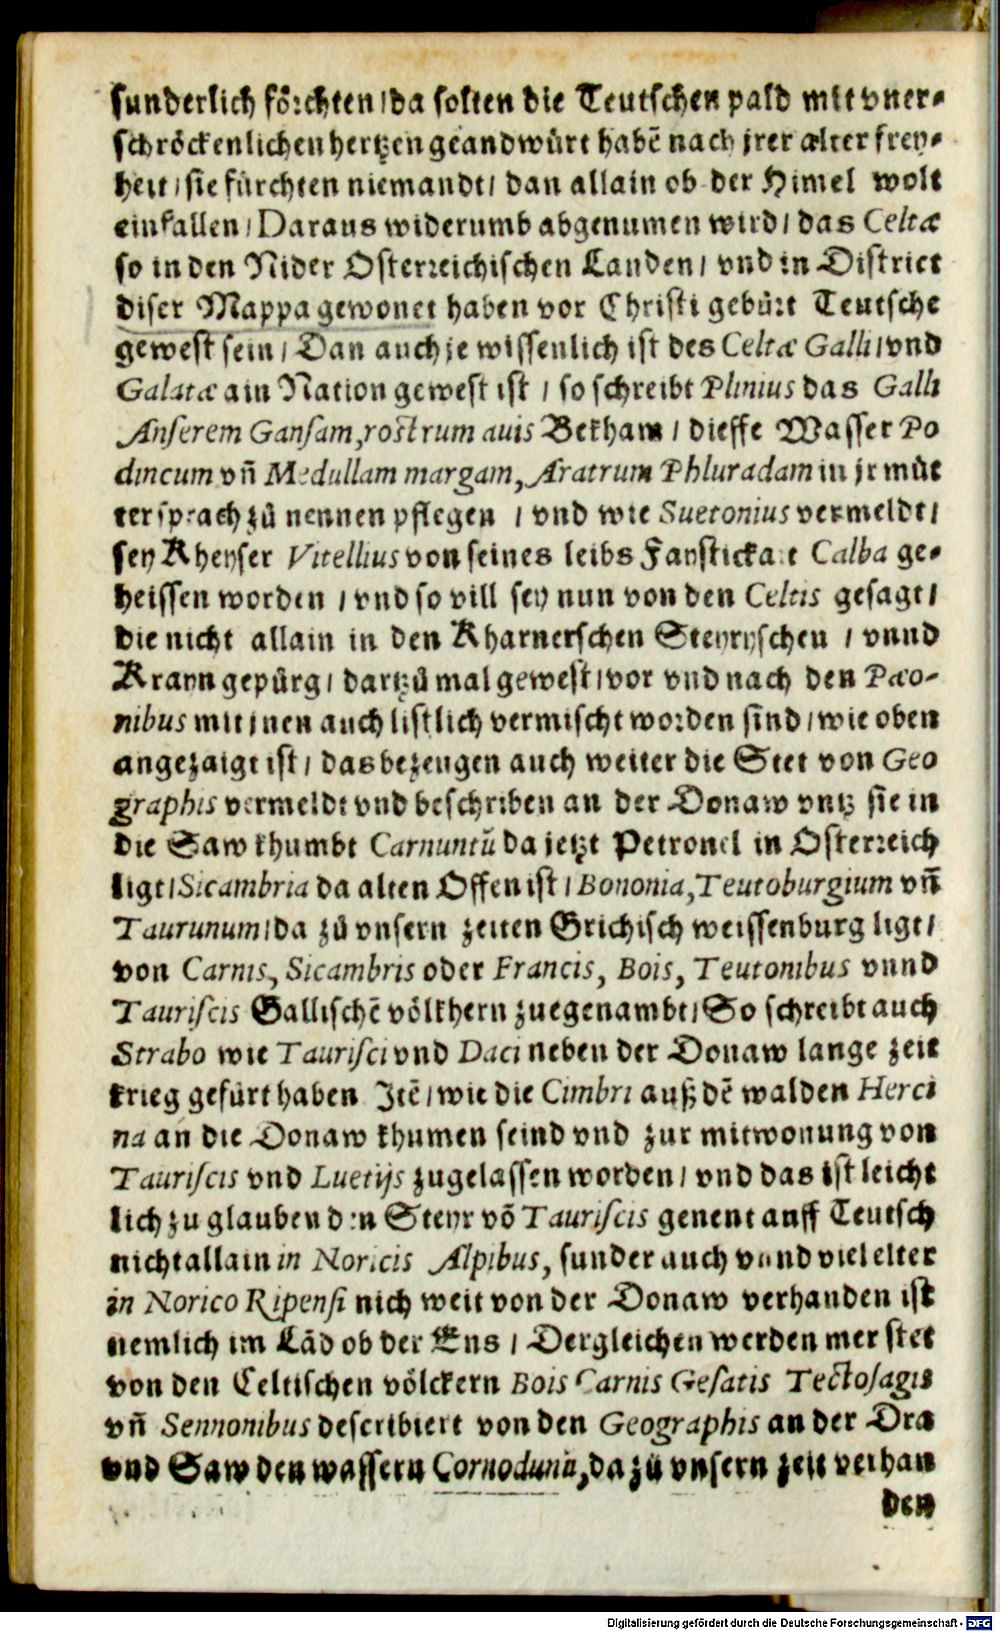 sunderlich förchten / da solten die Teutschen pald mit vner-
schröckenlichen hertzen geandwůrt habẽ nach jrer alter frey-
heit / sie fürchten niemandt / dan allain ob der Himel wolt
einfallen / Daraus widerumb abgenumen wird / das Celtæ
so in den Nider Osterreichischen Landen / vnd in District
diser Mappa gewonet haben vor Christi gebůrt Teutsche
gewest sein / Dan auch je wissenlich ist des Celtæ Galli / vnd
Galatæ ain Nation gewest ist / so schreibt Plinius das Galli
Anserem Gansam, rostrum auis Bekham / dieffe Wasser Po
dincum vñ Medullam margam, Aratrum Phluradam in jr můt
tersprach zů nennen pflegen / vnd wie Suetonius vermeldt /
sey Kheyser Vitellius von seines leibs Faysticka t Calba ge-
heissen worden / vnd so vill sey nun von den Celtis gesagt /
die nicht allain in den Kharnerschen Steyryschen / vnnd
Krayn gepürg / dartzů mal gewest / vor vnd nach den Pæo-
nibus mit jnen auch listlich vermischt worden sind / wie oben
angezaigt ist / das bezeugen auch weiter die Stet von Geo
graphis vermeldt vnd beschriben an der Donaw vntz sie in
die Saw khumbt Carnuntũ da jetzt Petronel in Osterreich
ligt / Sicambria da alten Offen ist / Bononia, Teutoburgium vñ
Taurunum / da zů vnsern zeiten Grichisch weissenburg ligt /
von Carnis, Sicambris oder Francis, Bois, Teutonibus vnnd
Tauriscis Gallischẽ völkhern zuegenambt / So schreibt auch
Strabo wie Taurisci vnd Daci neben der Donaw lange zeit
krieg gefürt haben Itẽ / wie die Cimbri auß dẽ walden Herci
na an die Donaw khumen seind vnd zur mitwonung von
Tauriscis vnd Luetijs zugelassen worden / vnd das ist leicht
lich zu glauben den Steyr võ Tauriscis genent auff Teutsch
nicht allain in Noricis Alpibus, sunder auch vnnd viel elter
in Norico Ripensi nich weit von der Donaw verhanden ist
nemlich im Lãd ob der Ens / Dergleichen werden mer stet
von den Celtischen völckern Bois Carnis Gesatis Tectosagis
vñ Sennonibus describiert von den Geographis an der Dra
vnd Saw den wassern Cornoduna, da zů vnsern zeit verhan
den
Digitalisierung gefördert durch die Deutsche Forschungsgemeinschaft - DFG